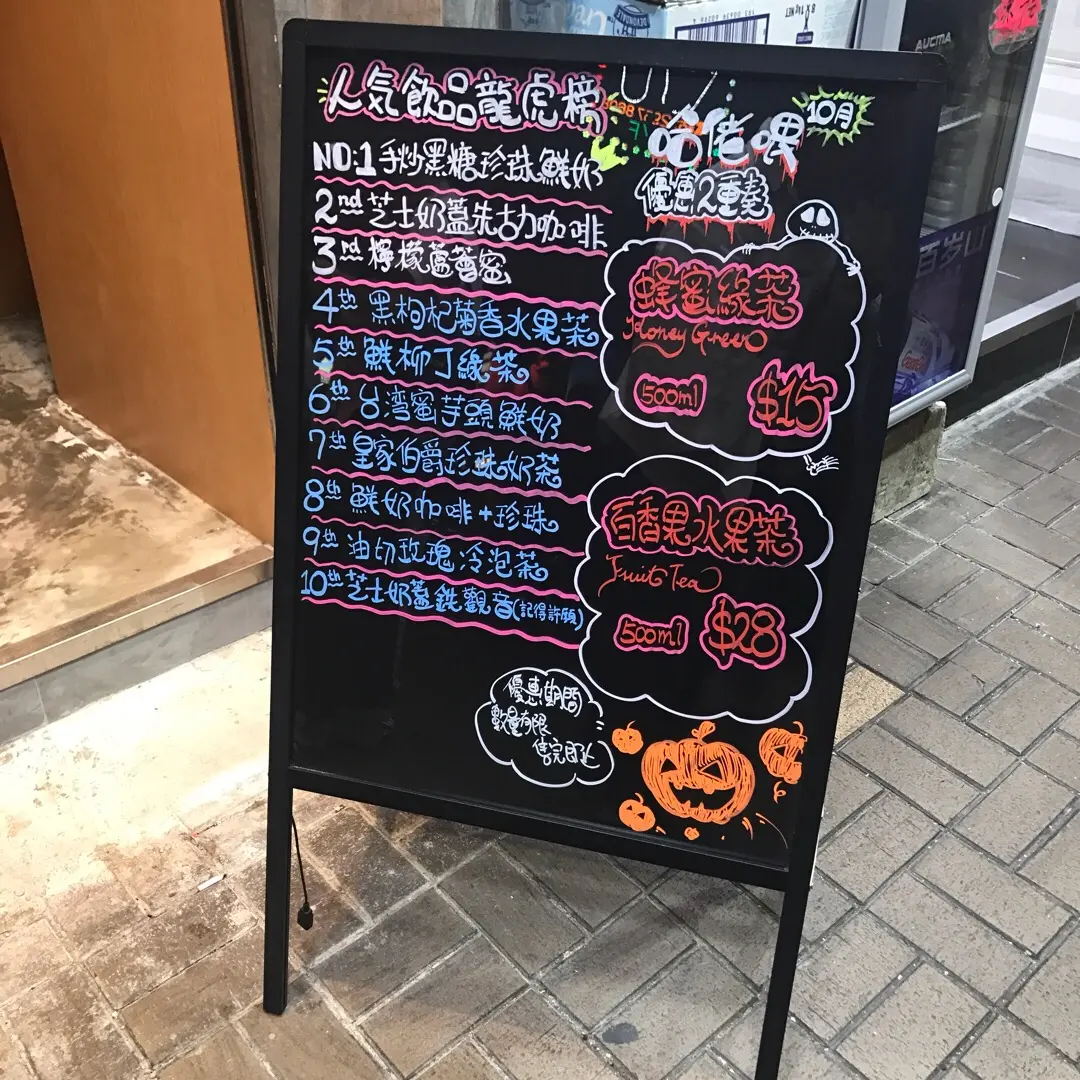 人気飲品龍虎榜
NO:1 手炒黑糖珍珠鮮奶
2nd 芝士奶蓋朱古力咖啡
3rd 檸檬蘆薈蜜
4th 黑枸杞菊香水果茶
5th 鮮柳丁綠茶
6th 台湾蜜芋頭鮮奶
7th 皇家伯爵珍珠奶茶
8th 鮮奶咖啡+珍珠
9th 油切玫瑰冷泡茶
10th 芝士奶蓋鉄觀音(記得許願)
10月
哈佬喂
優惠2重奏
蜂蜜綠茶
Honey Green
500ml
$15
百香果水果茶
Fruit Tea
500ml
$28
優惠期間
數量有限
售完即止
AUCMA
百岁山